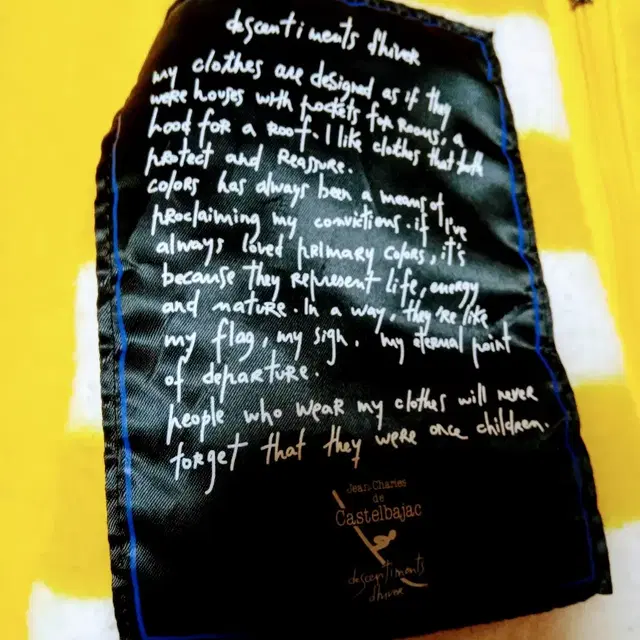 descentiments d'hiver
my clothes are designed as if they
were houses with pockets for rooms, a
hood for a roof. I like clothes that both
protect and reassure.
colors has always been a means of
proclaiming my convictions. if I've
always loved primary colors, it's
because they represent life, energy
and nature. In a way, they're like
my flag, my sign. my eternal point
of departure.
people who wear my clothes will never
forget that they were once children.
Jean.Charles
de
Castelbajac
descentiments
d'hiver